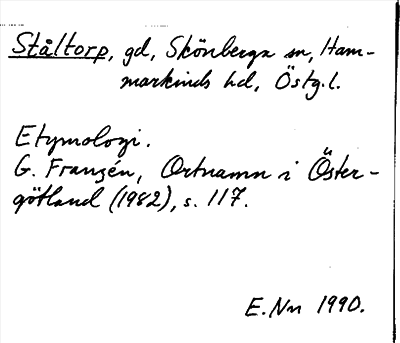 Ståltorp, gd, Skönberga sn, Ham-
markinds hd, Östg.l.
Etymologi.
G. Franzén, Ortnamn i Öster-
götland (1982), s. 117.
E.Nn 1990.